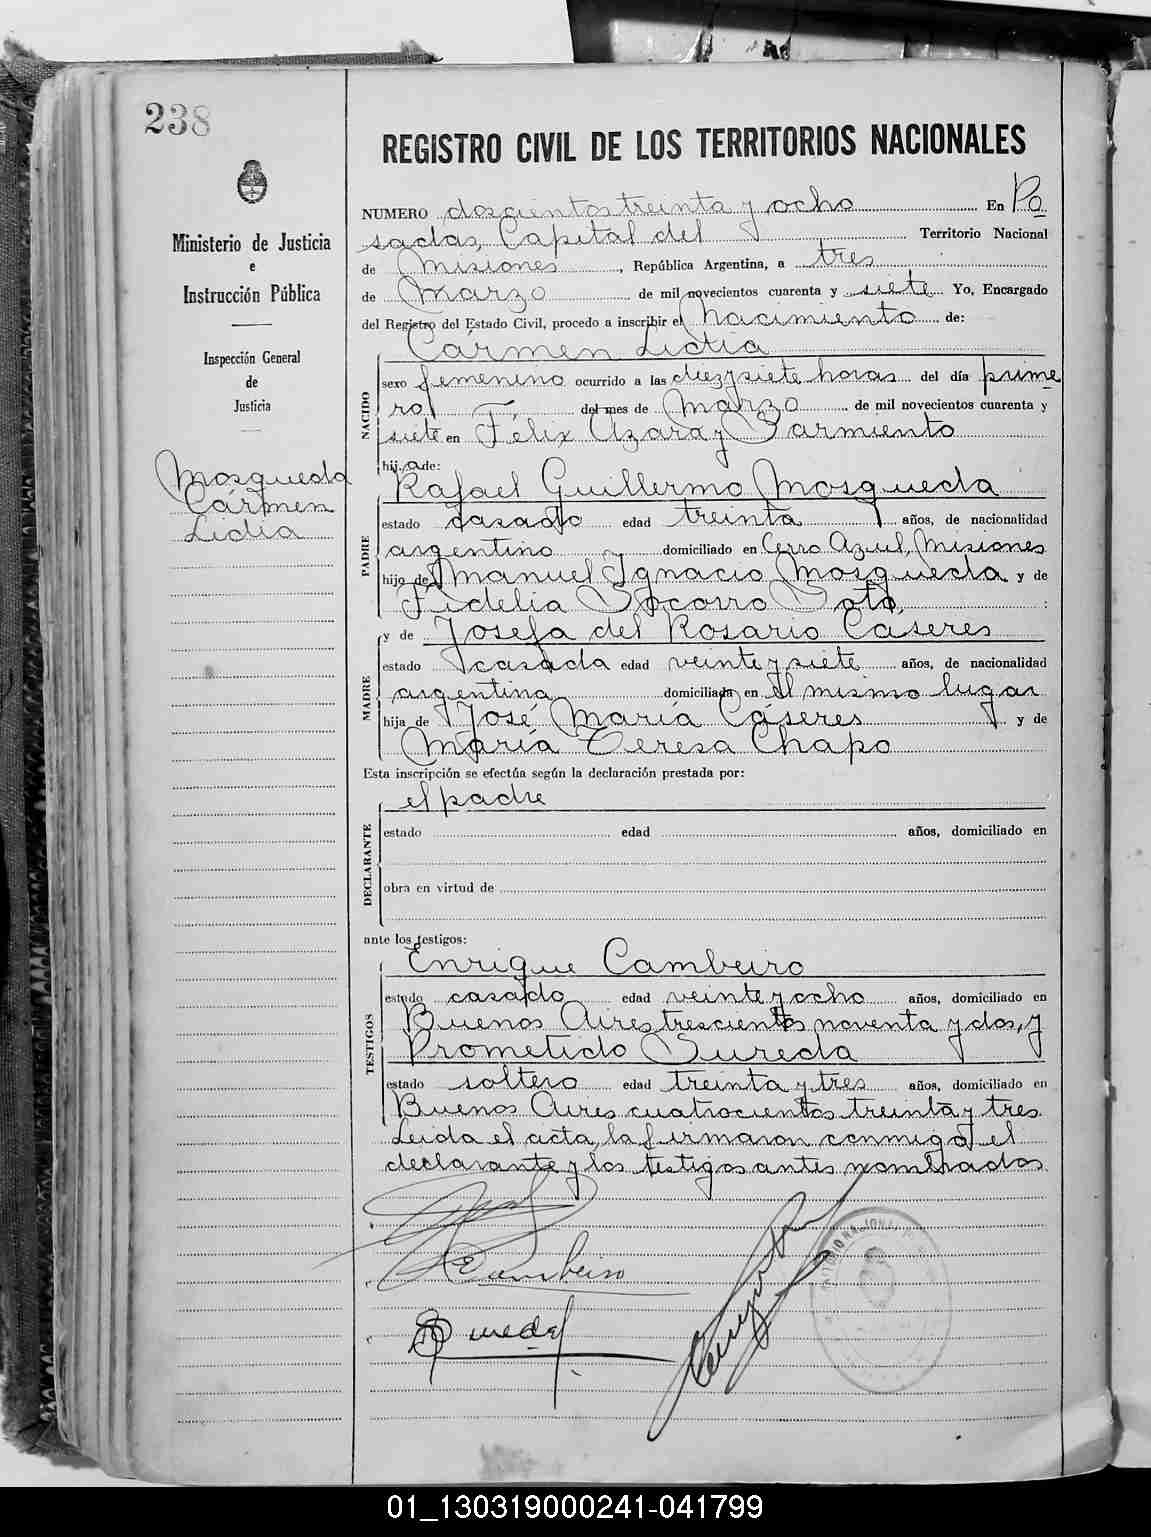 238
Ministerio de Justicia
e
Instrucción Pública
Inspección General
de
Justicia
Mosqueda
Cármen
Lidia
REGISTRO CIVIL DE LOS TERRITORIOS NACIONALES
NUMERO doscientos treinta y ocho En Po
sadas, Capital del Territorio Nacional
de Misiones, República Argentina, a tres
de Marzo de mil novecientos cuarenta y siete Yo, Encargado
del Registro del Estado Civil, procedo a inscribir el Nacimiento de:
Cármen Lidia
NACIDO
sexo femenino ocurrido a las diez y siete horas del día prime
ro del mes de Marzo de mil novecientos cuarenta y
siete en Félix Azara y Sarmiento
hija de:
Rafael Guillermo Mosqueda
PADRE
estado casado edad treinta años, de nacionalidad
argentino domiciliado en Cerro Azul, Misiones
hijo de Manuel Ignacio Mosqueda y de
Fidelia Socorro Soto
y de Josefa del Rosario Cáseres
MADRE
estado casada edad veinte y siete años, de nacionalidad
argentina domiciliada en el mismo lugar
hija de José María Cáseres y de
María Teresa Chapo
Esta inscripción se efectúa según la declaración prestada por:
el padre
DECLARANTE
estado edad años, domiciliado en
obra en virtud de
ante los testigos:
Enrique Cambeiro
TESTIGOS
estado casado edad veinte y ocho años, domiciliado en
Buenos Aires trescientos noventa y dos, y
Prometido Sureda
estado soltero edad treinta y tres años, domiciliado en
Buenos Aires cuatrocientos treinta y tres
Leida el acta, la firmaron conmigo el
declarante y los testigos antes nombrados
ECambeiro
Sureda
01_130319000241-041799